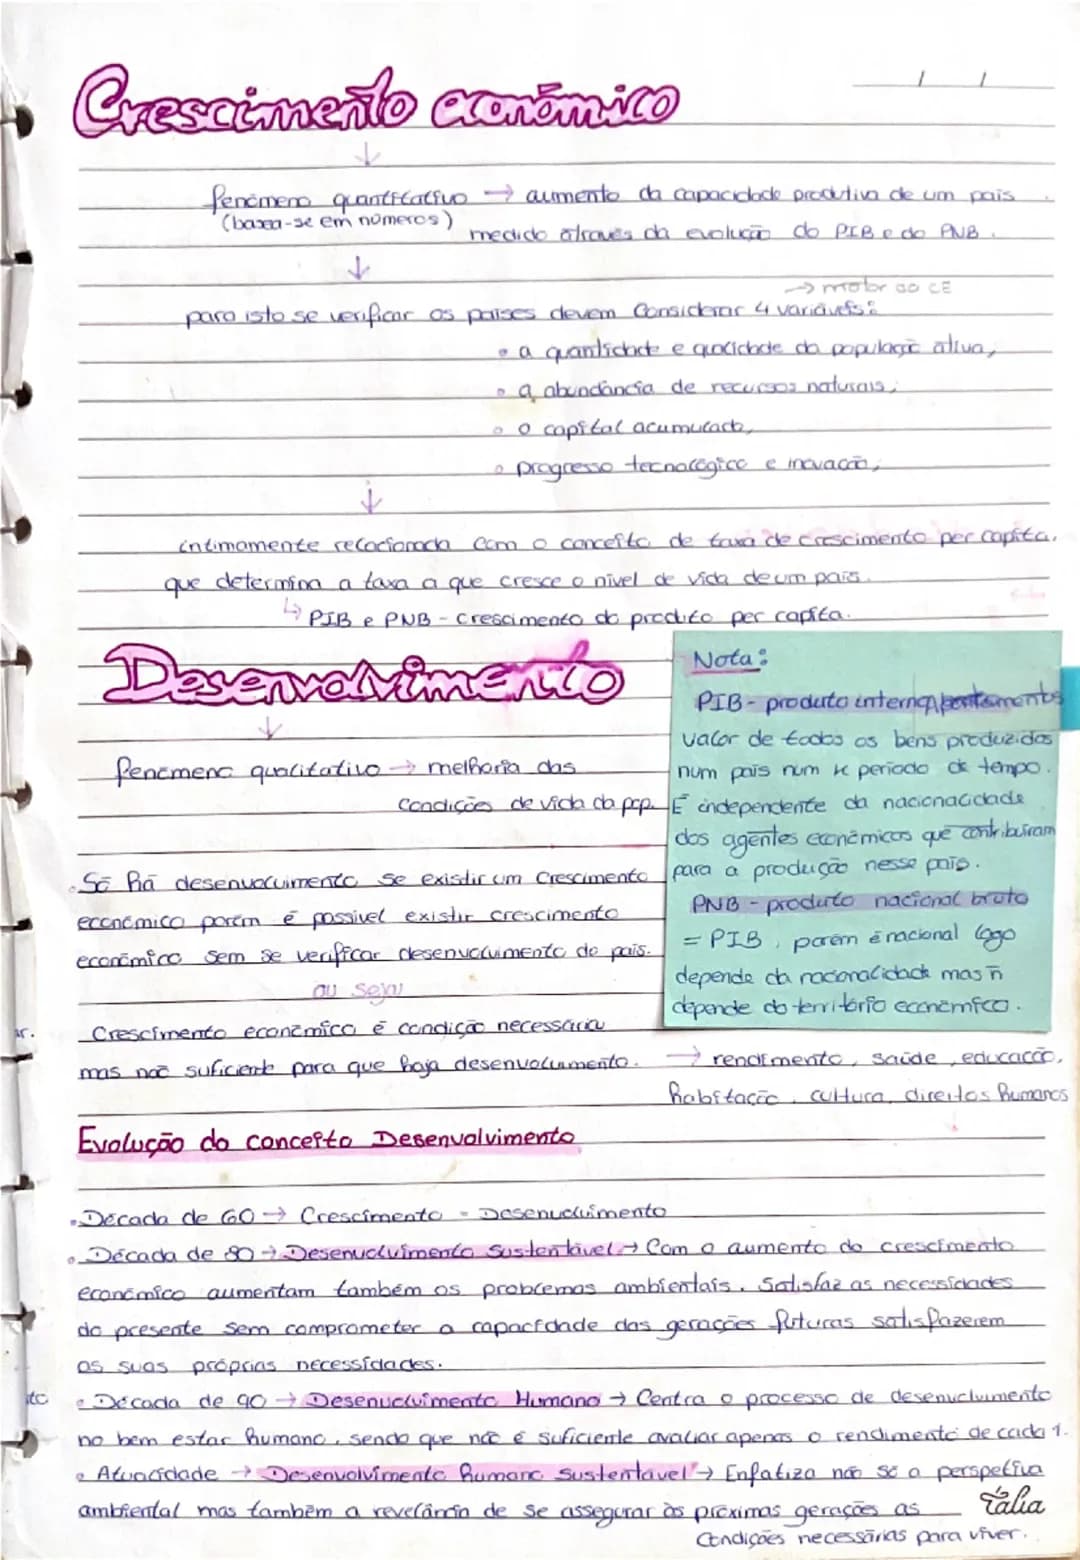 Crescimento económico
/ /
fenómeno quantitativo → aumento da capacidade produtiva de um país
(baseia-se em números)
medido através da evolução do PIB e do PNB.
→ motor do CE
para isto se verificar os países devem considerar 4 variáveis:
• a quantidade e qualidade da população ativa,
• a abundância de recursos naturais;
• o capital acumulado,
• progresso tecnológico e inovação;
intimamente relacionada com o conceito de taxa de crescimento per capita,
que determina a taxa a que cresce o nível de vida de um país.
↳ PIB e PNB - crescimento do produto per capita.
Desenvolvimento
fenómeno qualitativo → melhoria das
condições de vida da pop.
• Só há desenvolvimento se existir um crescimento
económico porém é possível existir crescimento
económico sem se verificar desenvolvimento do país.
ou seja
Crescimento económico é condição necessária
mas não suficiente para que haja desenvolvimento.
Nota:
PIB - produto interno
valor de todos os bens produzidos
num país num período de tempo.
É independente da nacionalidade
dos agentes económicos que contribuíram
para a produção nesse país.
PNB - produto nacional bruto
= PIB, porém é nacional logo
depende da nacionalidade mas ñ
depende do território económico.
→ rendimento, saúde, educação,
habitação, cultura, direitos humanos
ar.
Evolução do conceito Desenvolvimento
• Década de 60 → Crescimento = Desenvolvimento
• Década de 80 → Desenvolvimento Sustentável → Com o aumento do crescimento
económico aumentam também os problemas ambientais. Satisfaz as necessidades
do presente sem comprometer a capacidade das gerações futuras satisfazerem
as suas próprias necessidades.
• Década de 90 → Desenvolvimento Humano → Centra o processo de desenvolvimento
no bem estar humano, sendo que não é suficiente avaliar apenas o rendimento de cada 1.
• Atualidade → Desenvolvimento humano sustentável → Enfatiza não só a perspetiva
ambiental mas também a revelância de se assegurar às próximas gerações as
condições necessárias para viver.
tália